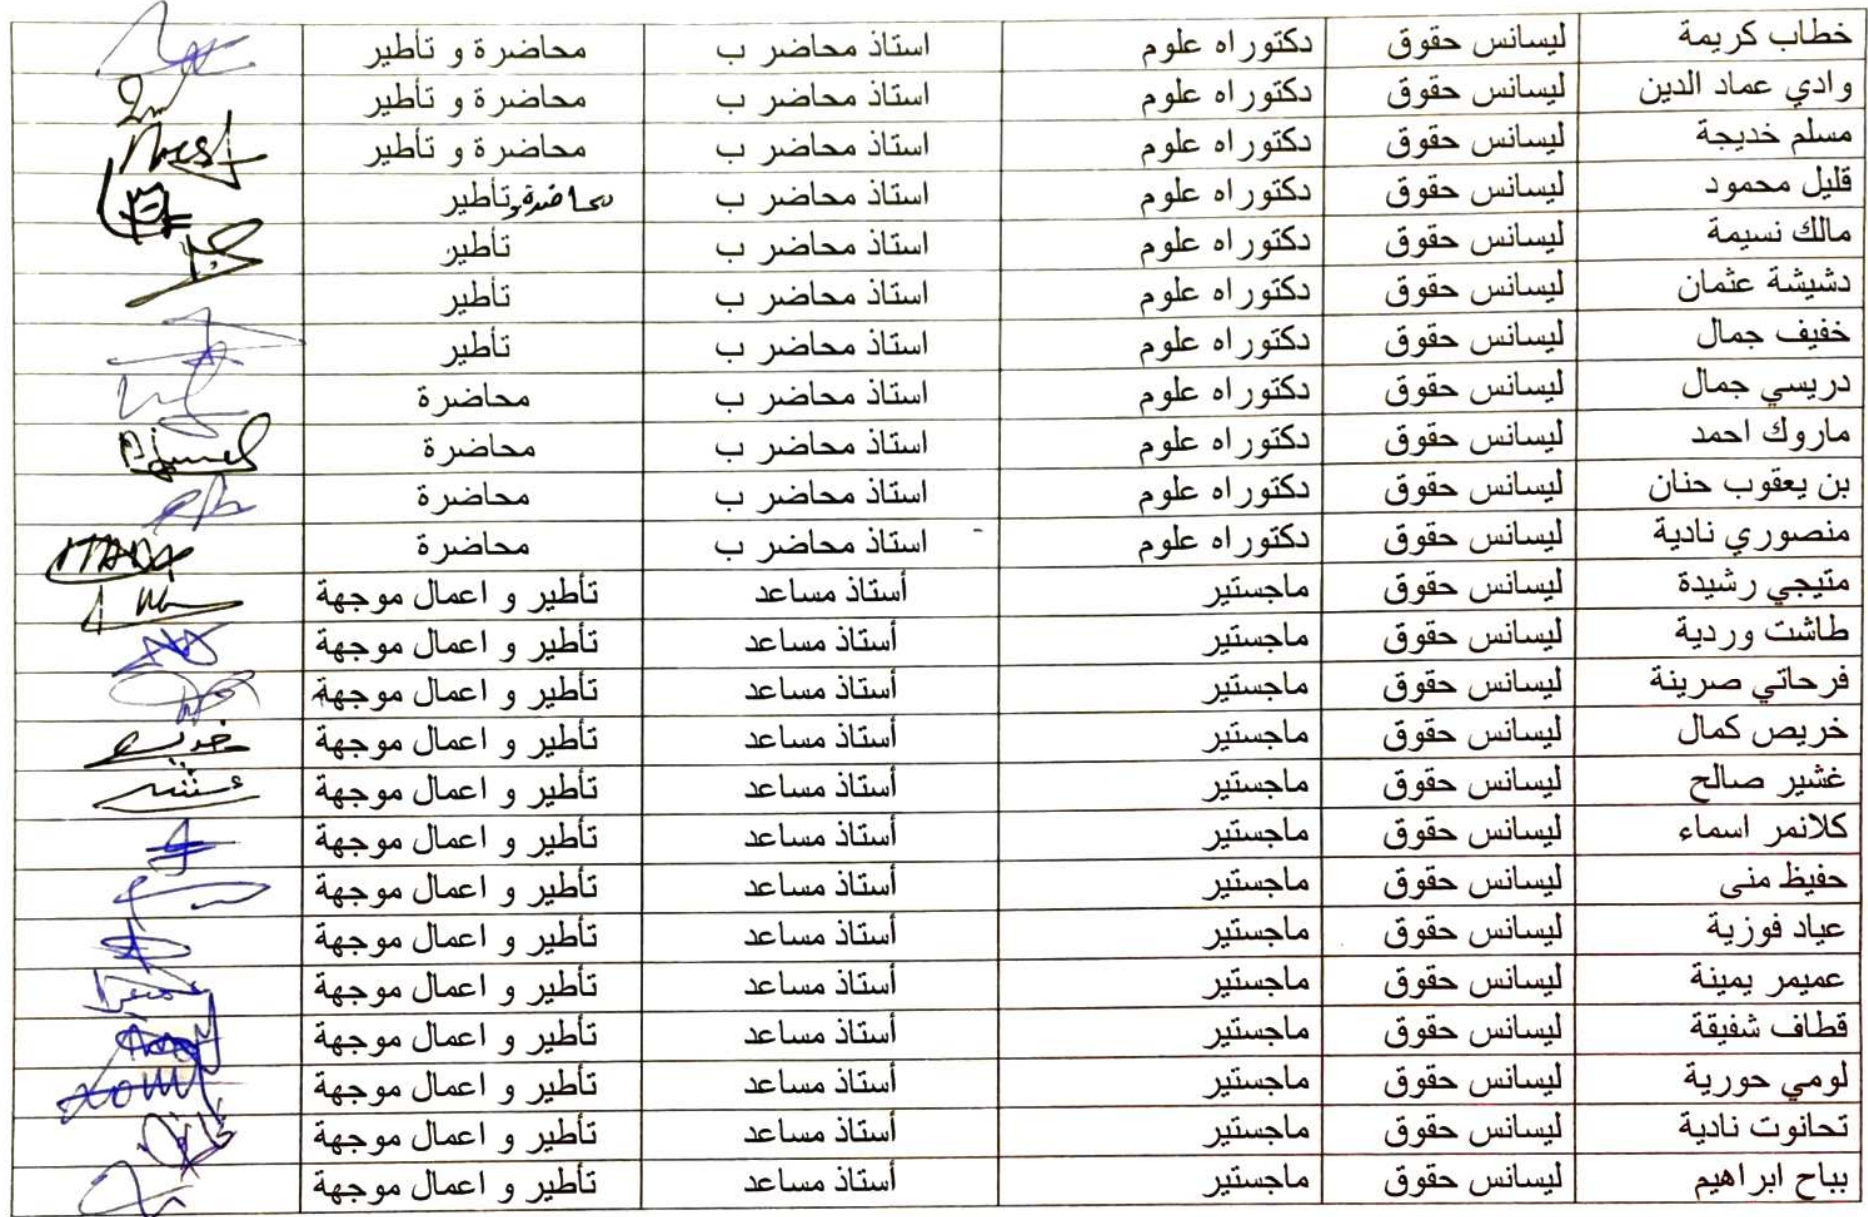 خطاب كريمة ليسانس حقوق دكتوراه علوم استاذ محاضر ب محاضرة و تأطير
وادي عماد الدين ليسانس حقوق دكتوراه علوم استاذ محاضر ب محاضرة و تأطير
مسلم خديجة ليسانس حقوق دكتوراه علوم استاذ محاضر ب محاضرة و تأطير
قليل محمود ليسانس حقوق دكتوراه علوم استاذ محاضر ب محاضرة و تأطير
مالك نسيمة ليسانس حقوق دكتوراه علوم استاذ محاضر ب تأطير
دشيشة عثمان ليسانس حقوق دكتوراه علوم استاذ محاضر ب تأطير
خفيف جمال ليسانس حقوق دكتوراه علوم استاذ محاضر ب تأطير
دريسي جمال ليسانس حقوق دكتوراه علوم استاذ محاضر ب محاضرة
ماروك احمد ليسانس حقوق دكتوراه علوم استاذ محاضر ب محاضرة
بن يعقوب حنان ليسانس حقوق دكتوراه علوم استاذ محاضر ب محاضرة
منصوري نادية ليسانس حقوق دكتوراه علوم استاذ محاضر ب محاضرة
متيجي رشيدة ليسانس حقوق ماجستير أستاذ مساعد تأطير و اعمال موجهة
طاشت وردية ليسانس حقوق ماجستير أستاذ مساعد تأطير و اعمال موجهة
فرحاتي صرينة ليسانس حقوق ماجستير أستاذ مساعد تأطير و اعمال موجهة
خريص كمال ليسانس حقوق ماجستير أستاذ مساعد تأطير و اعمال موجهة
غشير صالح ليسانس حقوق ماجستير أستاذ مساعد تأطير و اعمال موجهة
كلانمر اسماء ليسانس حقوق ماجستير أستاذ مساعد تأطير و اعمال موجهة
حفيظ منى ليسانس حقوق ماجستير أستاذ مساعد تأطير و اعمال موجهة
عياد فوزية ليسانس حقوق ماجستير أستاذ مساعد تأطير و اعمال موجهة
عميمر يمينة ليسانس حقوق ماجستير أستاذ مساعد تأطير و اعمال موجهة
قطاف شفيقة ليسانس حقوق ماجستير أستاذ مساعد تأطير و اعمال موجهة
لومي حورية ليسانس حقوق ماجستير أستاذ مساعد تأطير و اعمال موجهة
تحانوت نادية ليسانس حقوق ماجستير أستاذ مساعد تأطير و اعمال موجهة
بباح ابراهيم ليسانس حقوق ماجستير أستاذ مساعد تأطير و اعمال موجهة